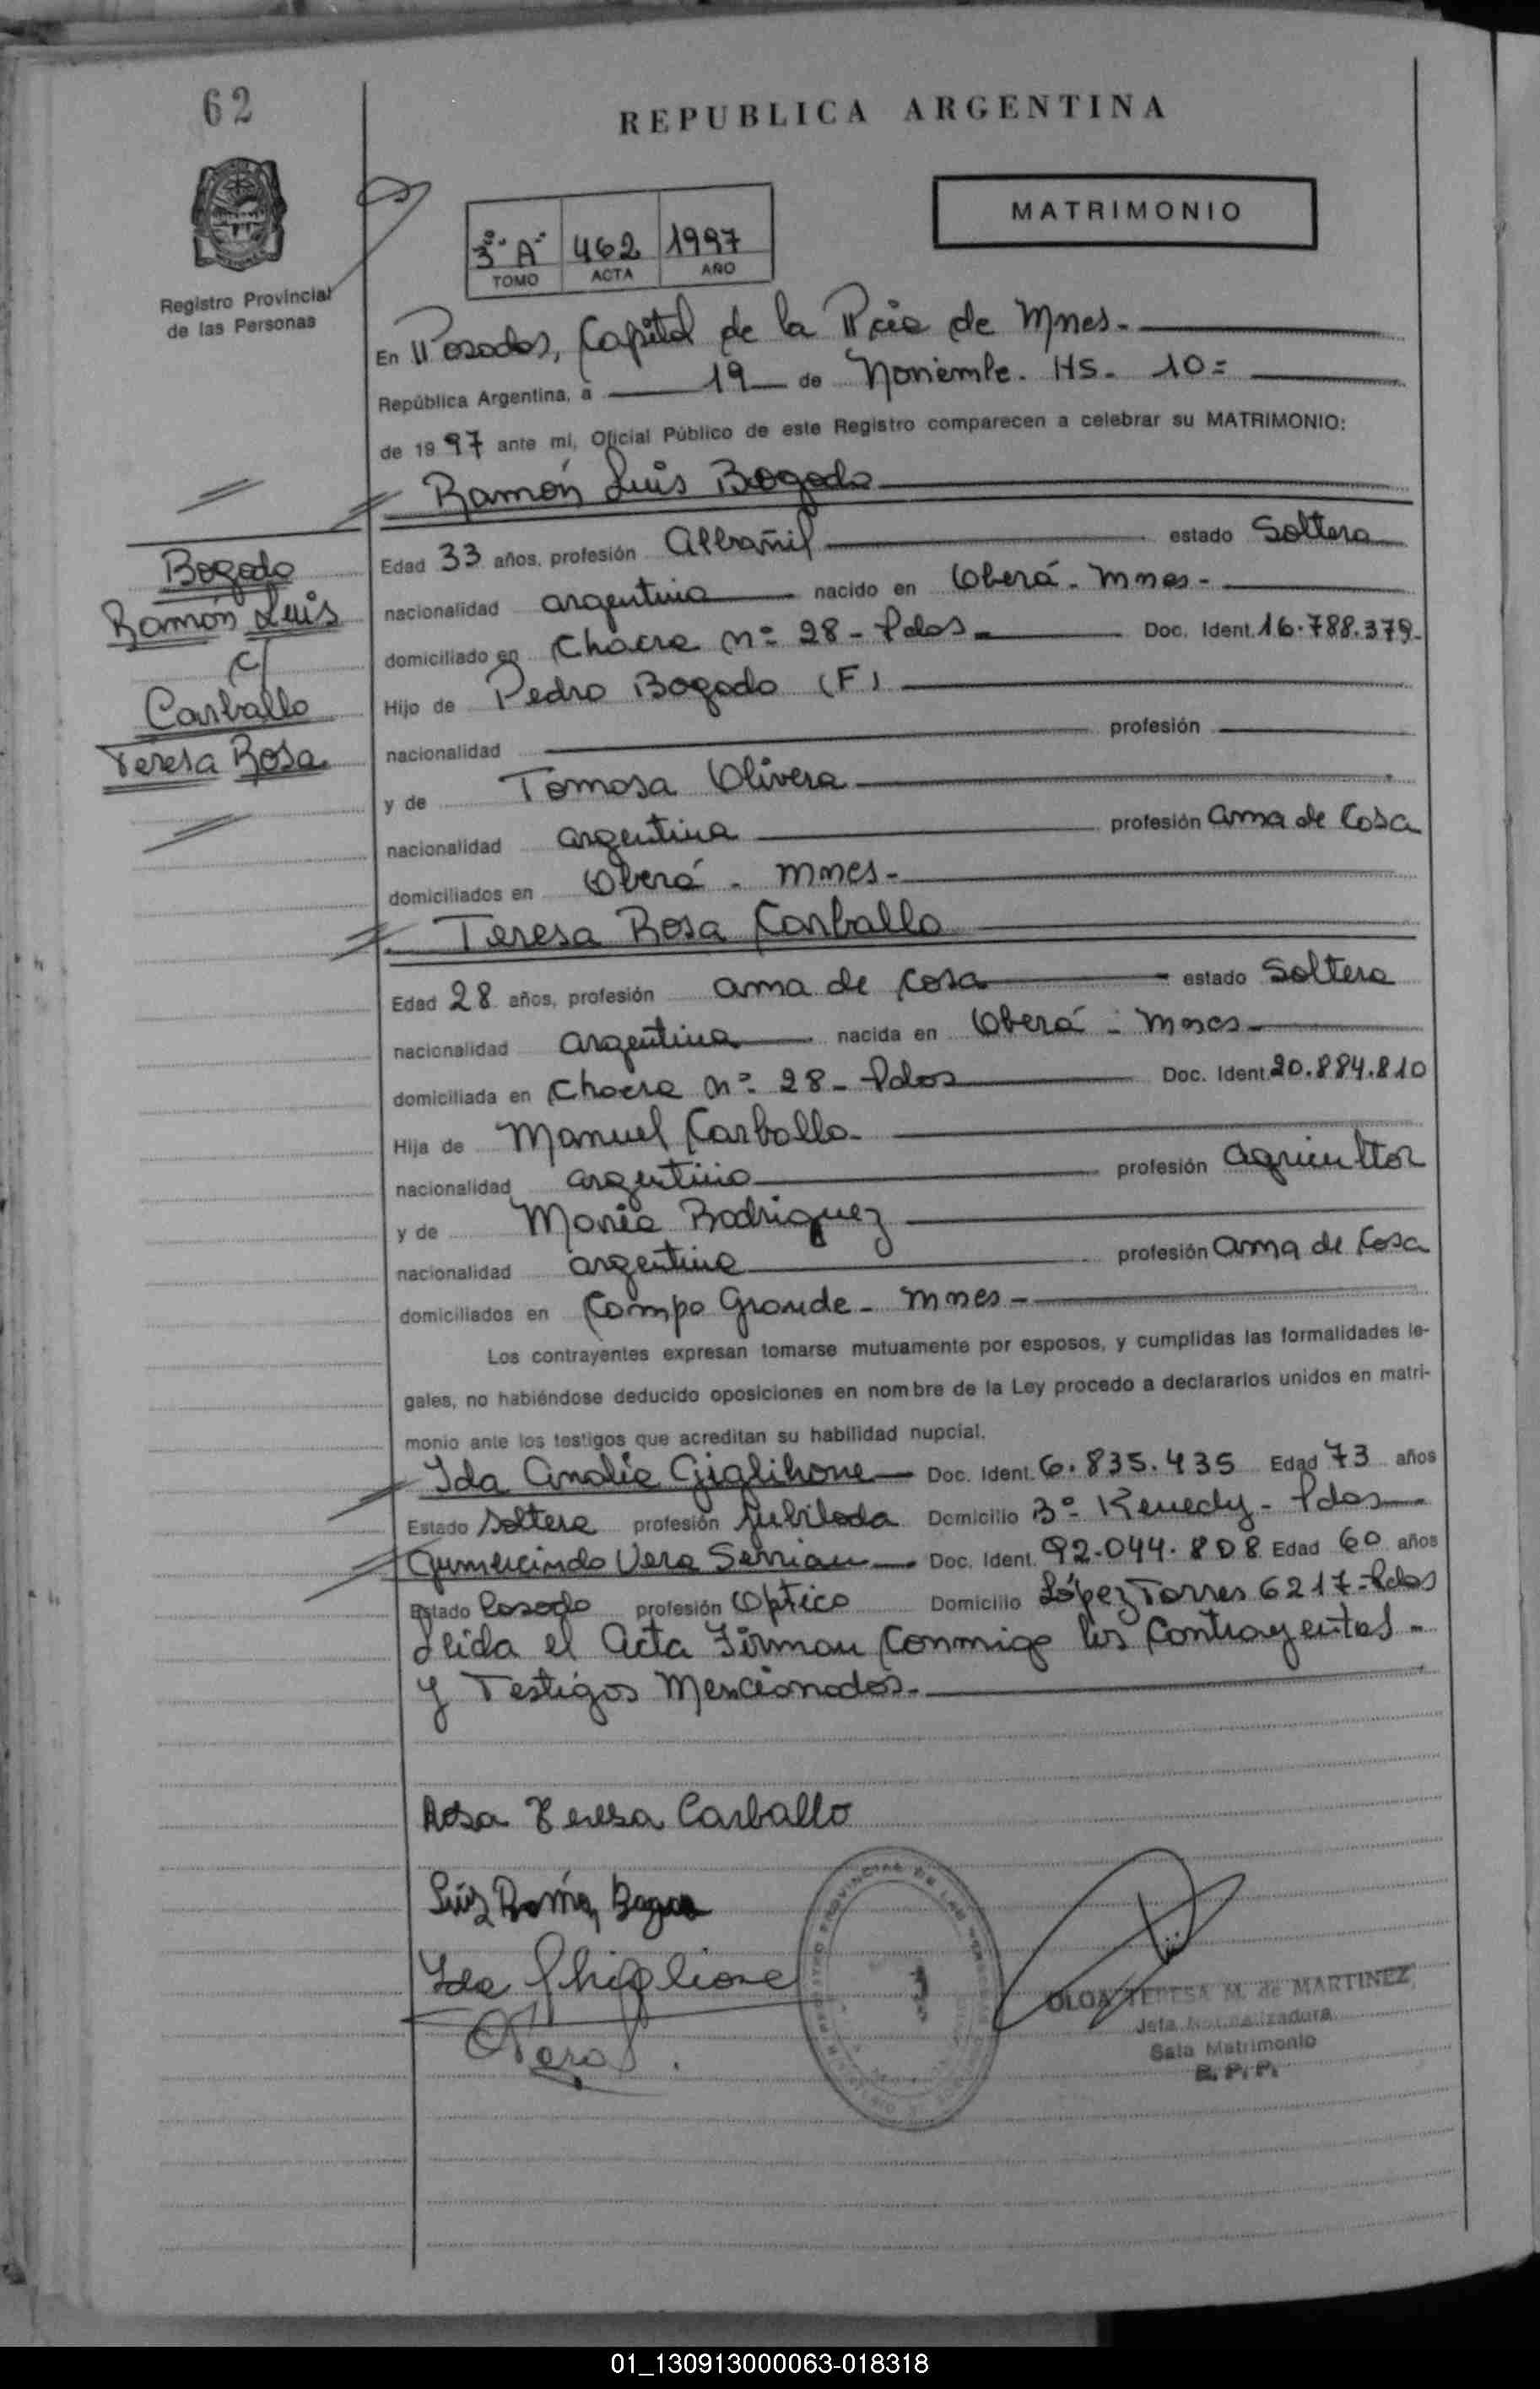 62
REPUBLICA ARGENTINA
Registro Provincial
de las Personas
3º "A" 462 1997
TOMO ACTA AÑO
MATRIMONIO
En Posadas, Capital de la Pcia de Mnes.
República Argentina, a 19 de Noviembre. Hs. 10=
de 1997 ante mí, Oficial Público de este Registro comparecen a celebrar su MATRIMONIO:
Ramón Luis Bogado
Edad 33 años, profesión Albañil estado Soltero
nacionalidad argentino nacido en Oberá - Mnes -
domiciliado en Chacra Nº 28 - Pdas - Doc. Ident. 16.788.379-
Hijo de Pedro Bogado (F)
nacionalidad profesión
y de Tomasa Olivera
nacionalidad argentina profesión ama de Casa
domiciliados en Oberá - Mnes -
Bogado
Ramón Luis
c/
Carballo
Teresa Rosa
Teresa Rosa Carballo
Edad 28 años, profesión ama de casa estado Soltera
nacionalidad argentina nacida en Oberá - Mnes -
domiciliada en Chacra Nº 28 - Pdas Doc. Ident. 20.884.810
Hija de Manuel Carballo
nacionalidad argentino profesión agricultor
y de María Rodriguez
nacionalidad argentina profesión ama de casa
domiciliados en Campo Grande - Mnes -
Los contrayentes expresan tomarse mutuamente por esposos, y cumplidas las formalidades le-
gales, no habiéndose deducido oposiciones en nombre de la Ley procedo a declararlos unidos en matri-
monio ante los testigos que acreditan su habilidad nupcial.
Ida Analía Giglihone Doc. Ident. 6.835.435 Edad 73 años
Estado Soltera profesión Jubilada Domicilio Bº Kenedy - Pdas
Gumercindo Vera Serrian Doc. Ident. 92.044.808 Edad 60 años
Estado Casado profesión Optico Domicilio López Torres 6217 - Pdas
Leida el Acta Firman conmigo los Contrayentes -
y Testigos Mencionados.
Rosa Teresa Carballo
Luiz Ramón
Ida Ghiglione
OLGA TERESA M. de MARTINEZ
Jefa
Sala Matrimonio
R. P. P.
01_130913000063-018318